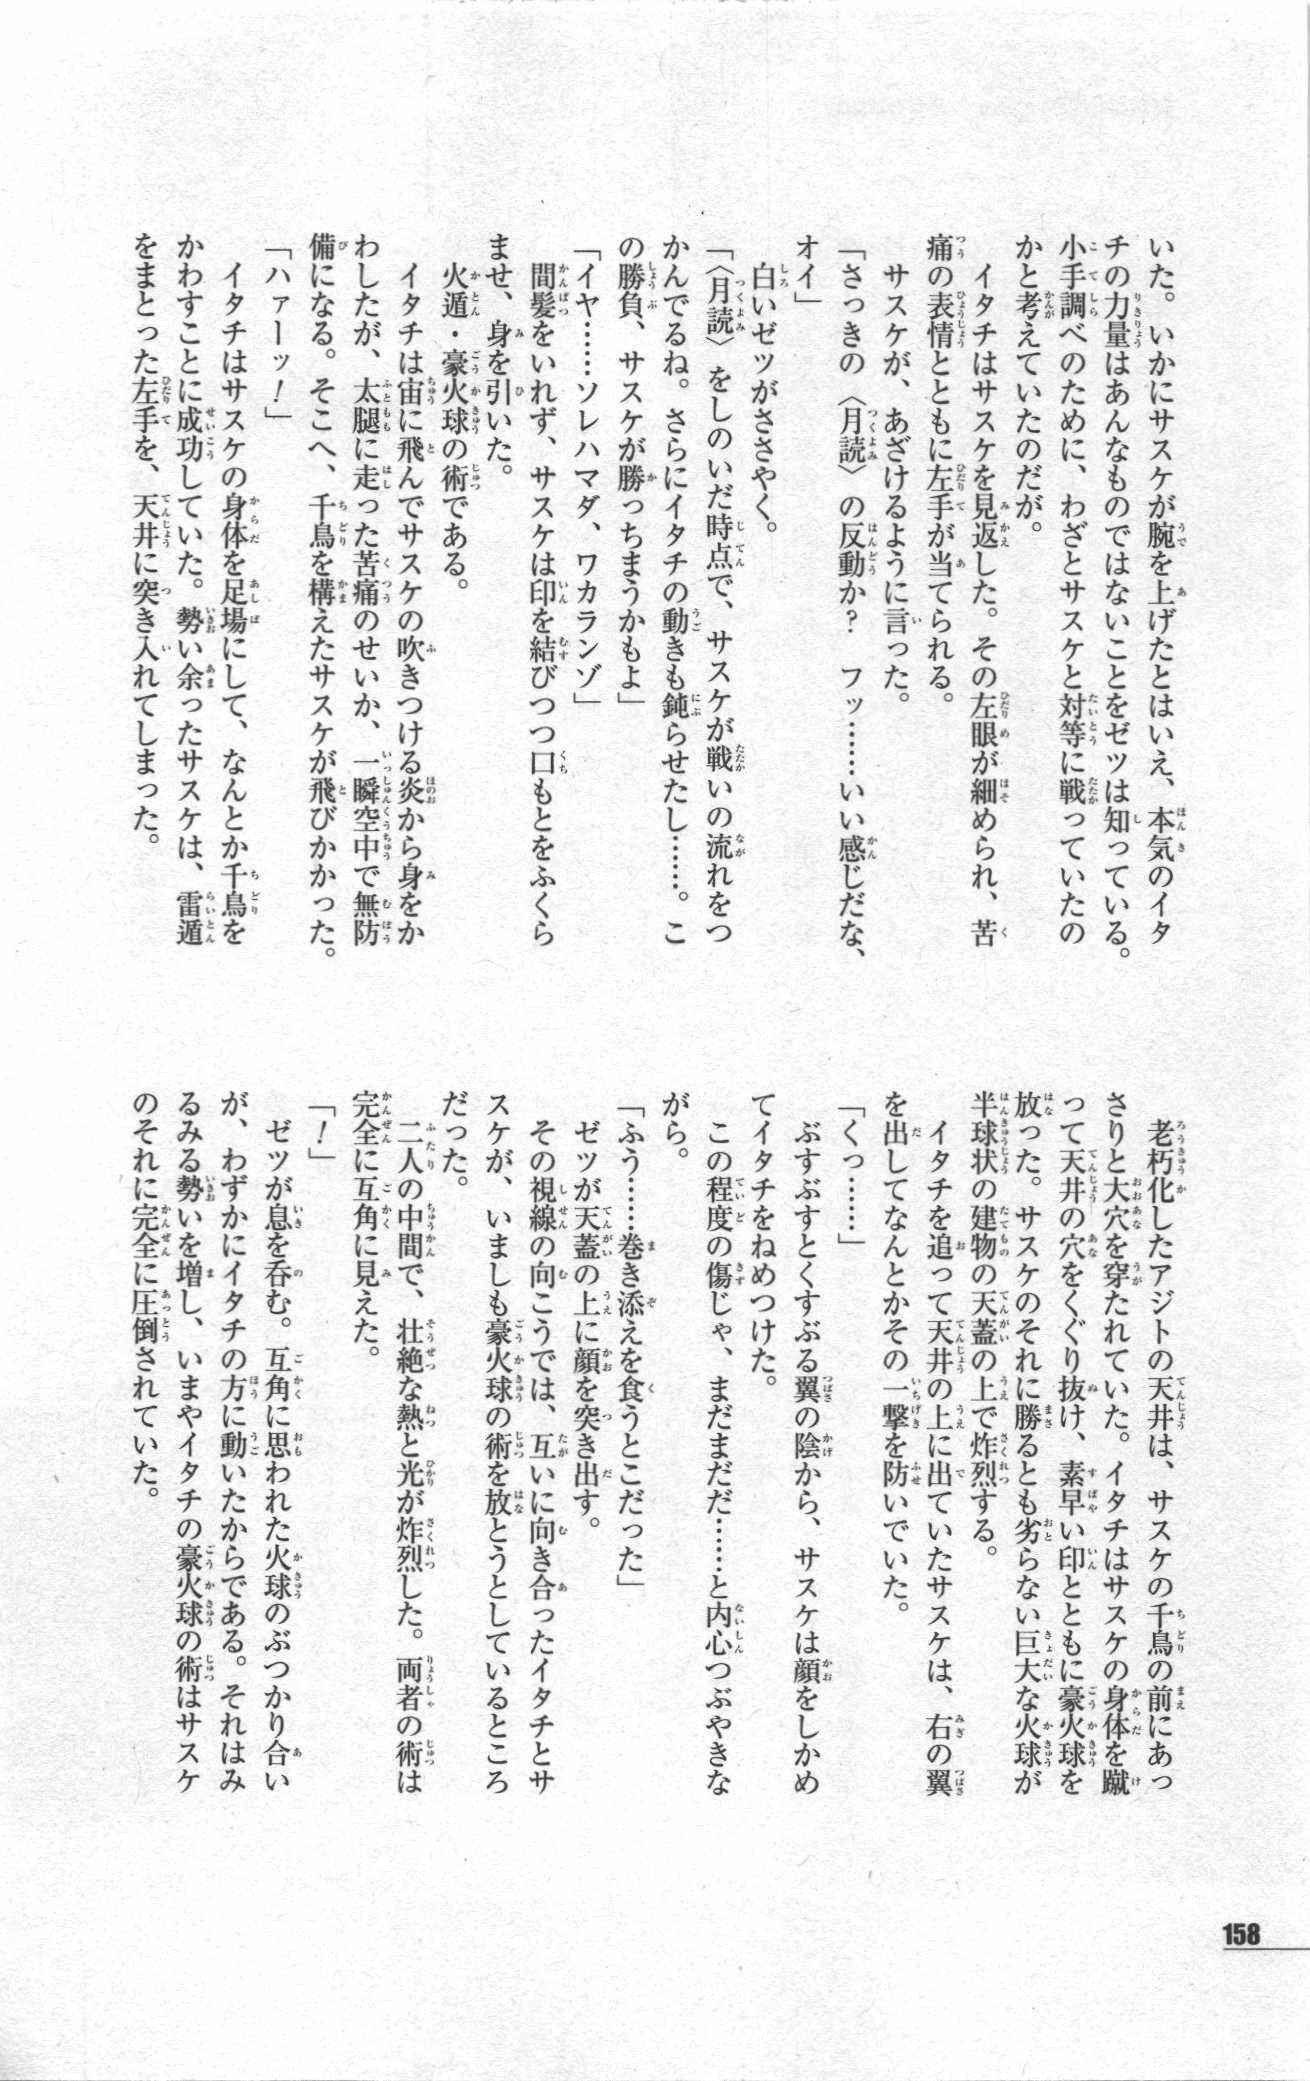 いた。いかにサスケが腕を上げたとはいえ、本気のイタ
チの力量はあんなものではないことをゼツは知っている。
小手調べのために、わざとサスケと対等に戦っていたの
かと考えていたのだが。
イタチはサスケを見返した。その左眼が細められ、苦
痛の表情とともに左手が当てられる。
サスケが、あざけるように言った。
「さっきの〈月読〉の反動か？　フッ……いい感じだな、
オイ」
白いゼツがささやく。
「〈月読〉をしのいだ時点で、サスケが戦いの流れをつ
かんでるね。さらにイタチの動きも鈍らせたし……。こ
の勝負、サスケが勝っちまうかもよ」
「イヤ……ソレハマダ、ワカランゾ」
間髪をいれず、サスケは印を結びつつ口もとをふくら
ませ、身を引いた。
火遁・豪火球の術である。
イタチは宙に飛んでサスケの吹きつける炎から身をか
わしたが、太腿に走った苦痛のせいか、一瞬空中で無防
備になる。そこへ、千鳥を構えたサスケが飛びかかった。
「ハァーッ！」
イタチはサスケの身体を足場にして、なんとか千鳥を
かわすことに成功していた。勢い余ったサスケは、雷遁
をまとった左手を、天井に突き入れてしまった。
老朽化したアジトの天井は、サスケの千鳥の前にあっ
さりと大穴を穿たれていた。イタチはサスケの身体を蹴
って天井の穴をくぐり抜け、素早い印とともに豪火球を
放った。サスケのそれに勝るとも劣らない巨大な火球が
半球状の建物の天蓋の上で炸烈する。
イタチを追って天井の上に出ていたサスケは、右の翼
を出してなんとかその一撃を防いでいた。
「くっ……」
ぶすぶすとくすぶる翼の陰から、サスケは顔をしかめ
てイタチをねめつけた。
この程度の傷じゃ、まだまだだ……と内心つぶやきな
がら。
「ふう……巻き添えを食うとこだった」
ゼツが天蓋の上に顔を突き出す。
その視線の向こうでは、互いに向き合ったイタチとサ
スケが、いましも豪火球の術を放とうとしているところ
だった。
二人の中間で、壮絶な熱と光が炸烈した。両者の術は
完全に互角に見えた。
「！」
ゼツが息を呑む。互角に思われた火球のぶつかり合い
が、わずかにイタチの方に動いたからである。それはみ
るみる勢いを増し、いまやイタチの豪火球の術はサスケ
のそれに完全に圧倒されていた。
158